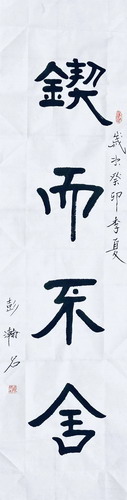 鍥而不舍
歲次癸卯季夏
彭瀚名